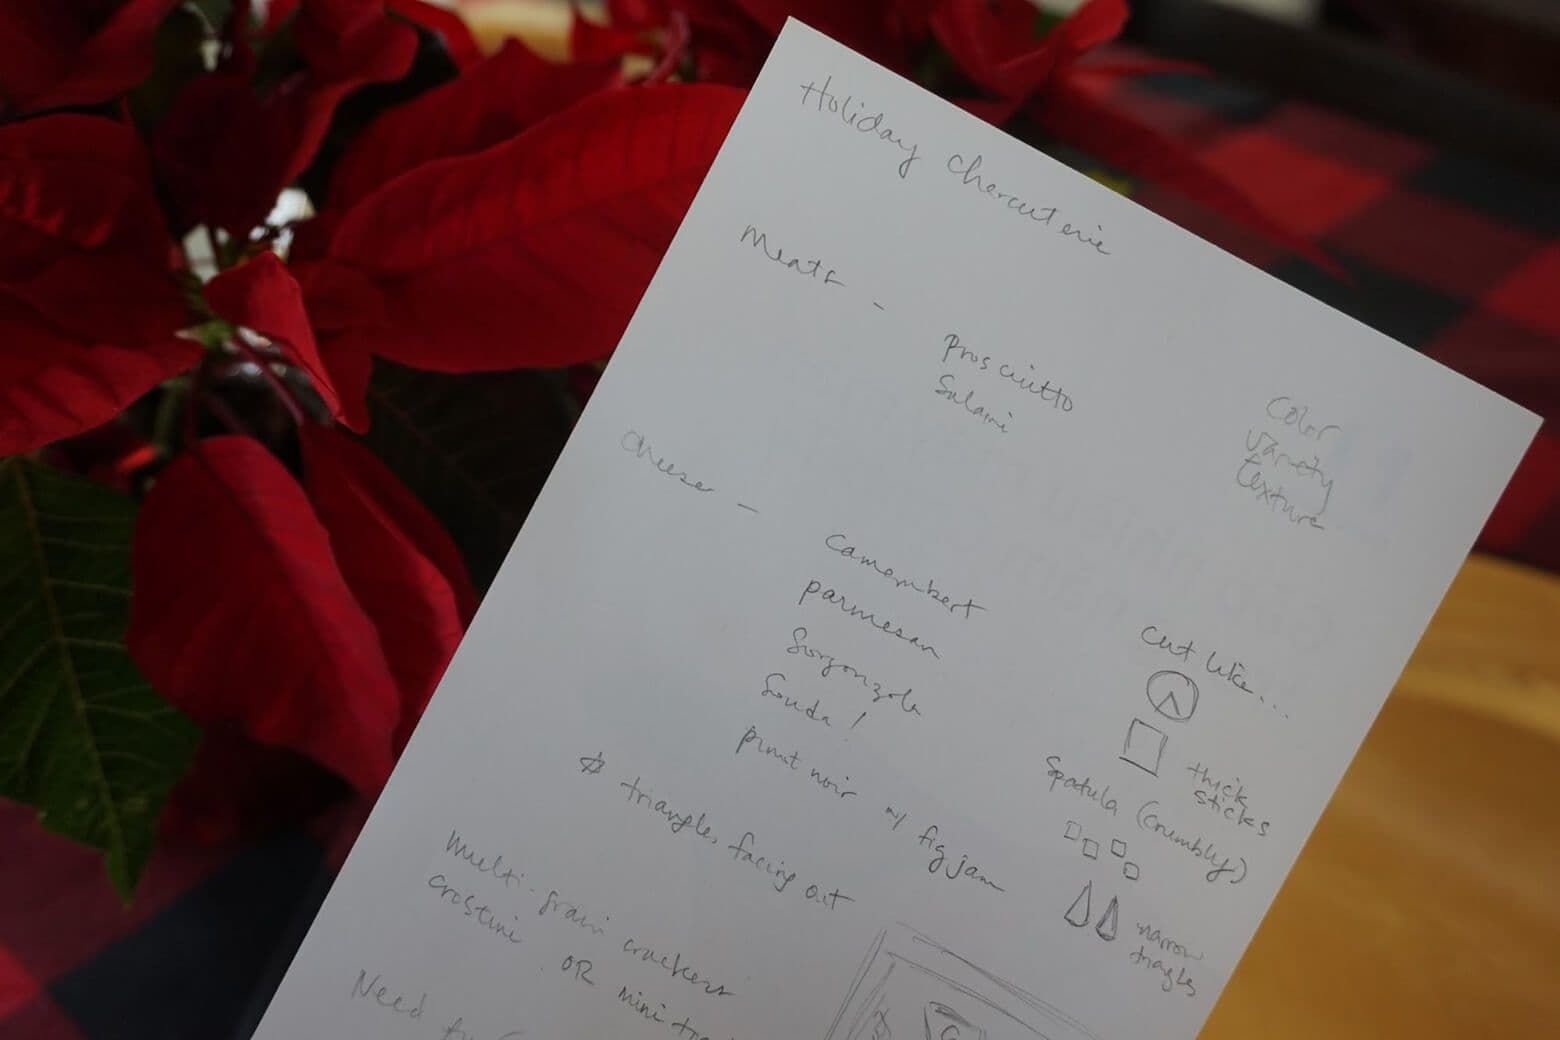 Holiday Charcuterie
Meats -
Prosciutto
Salami
Color
Variety
texture
Cheese -
Camembert
parmesan
Gorgonzola
Gouda!
pinot noir w/ fig jam
Cut like...
thick
sticks
Spatula (crumbly)
narrow
triagles
triangles facing out
Multi-grain crackers
crostini OR mini
Need